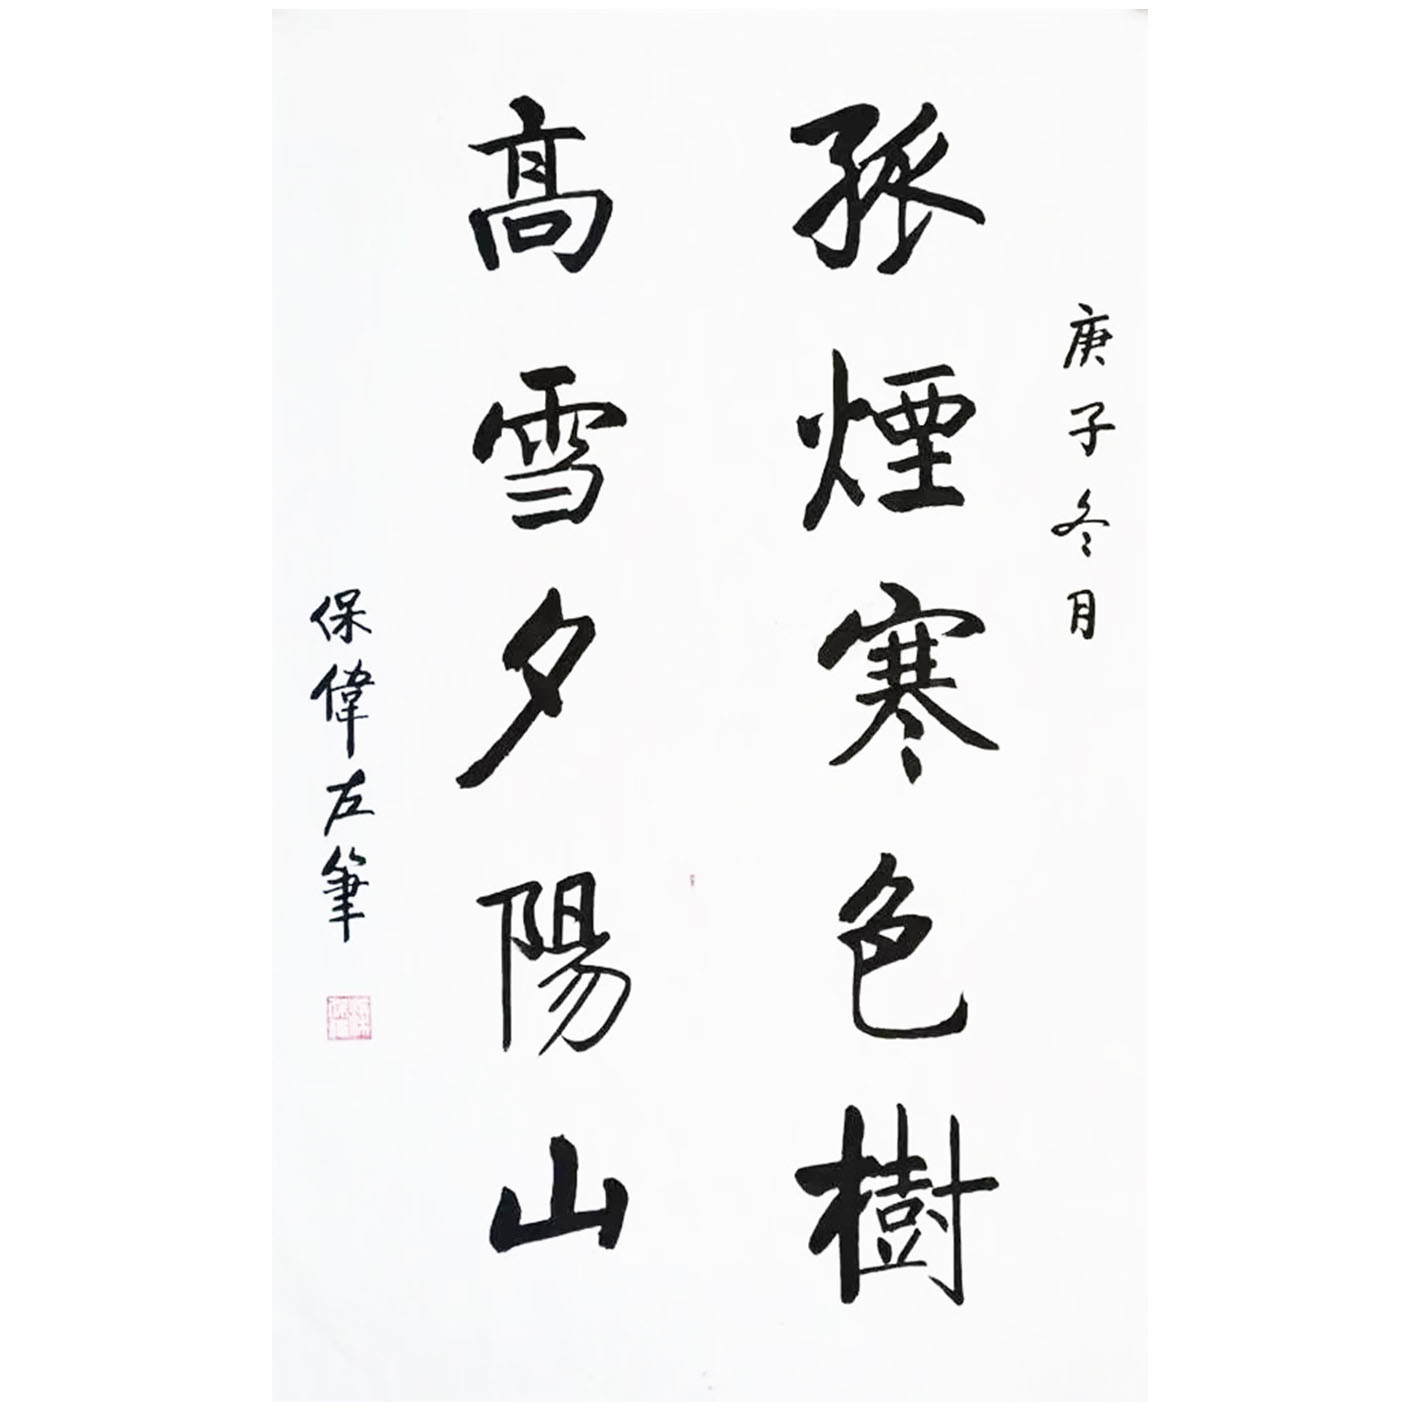 庚子冬月
孤煙寒色樹
高雪夕陽山
保偉左筆